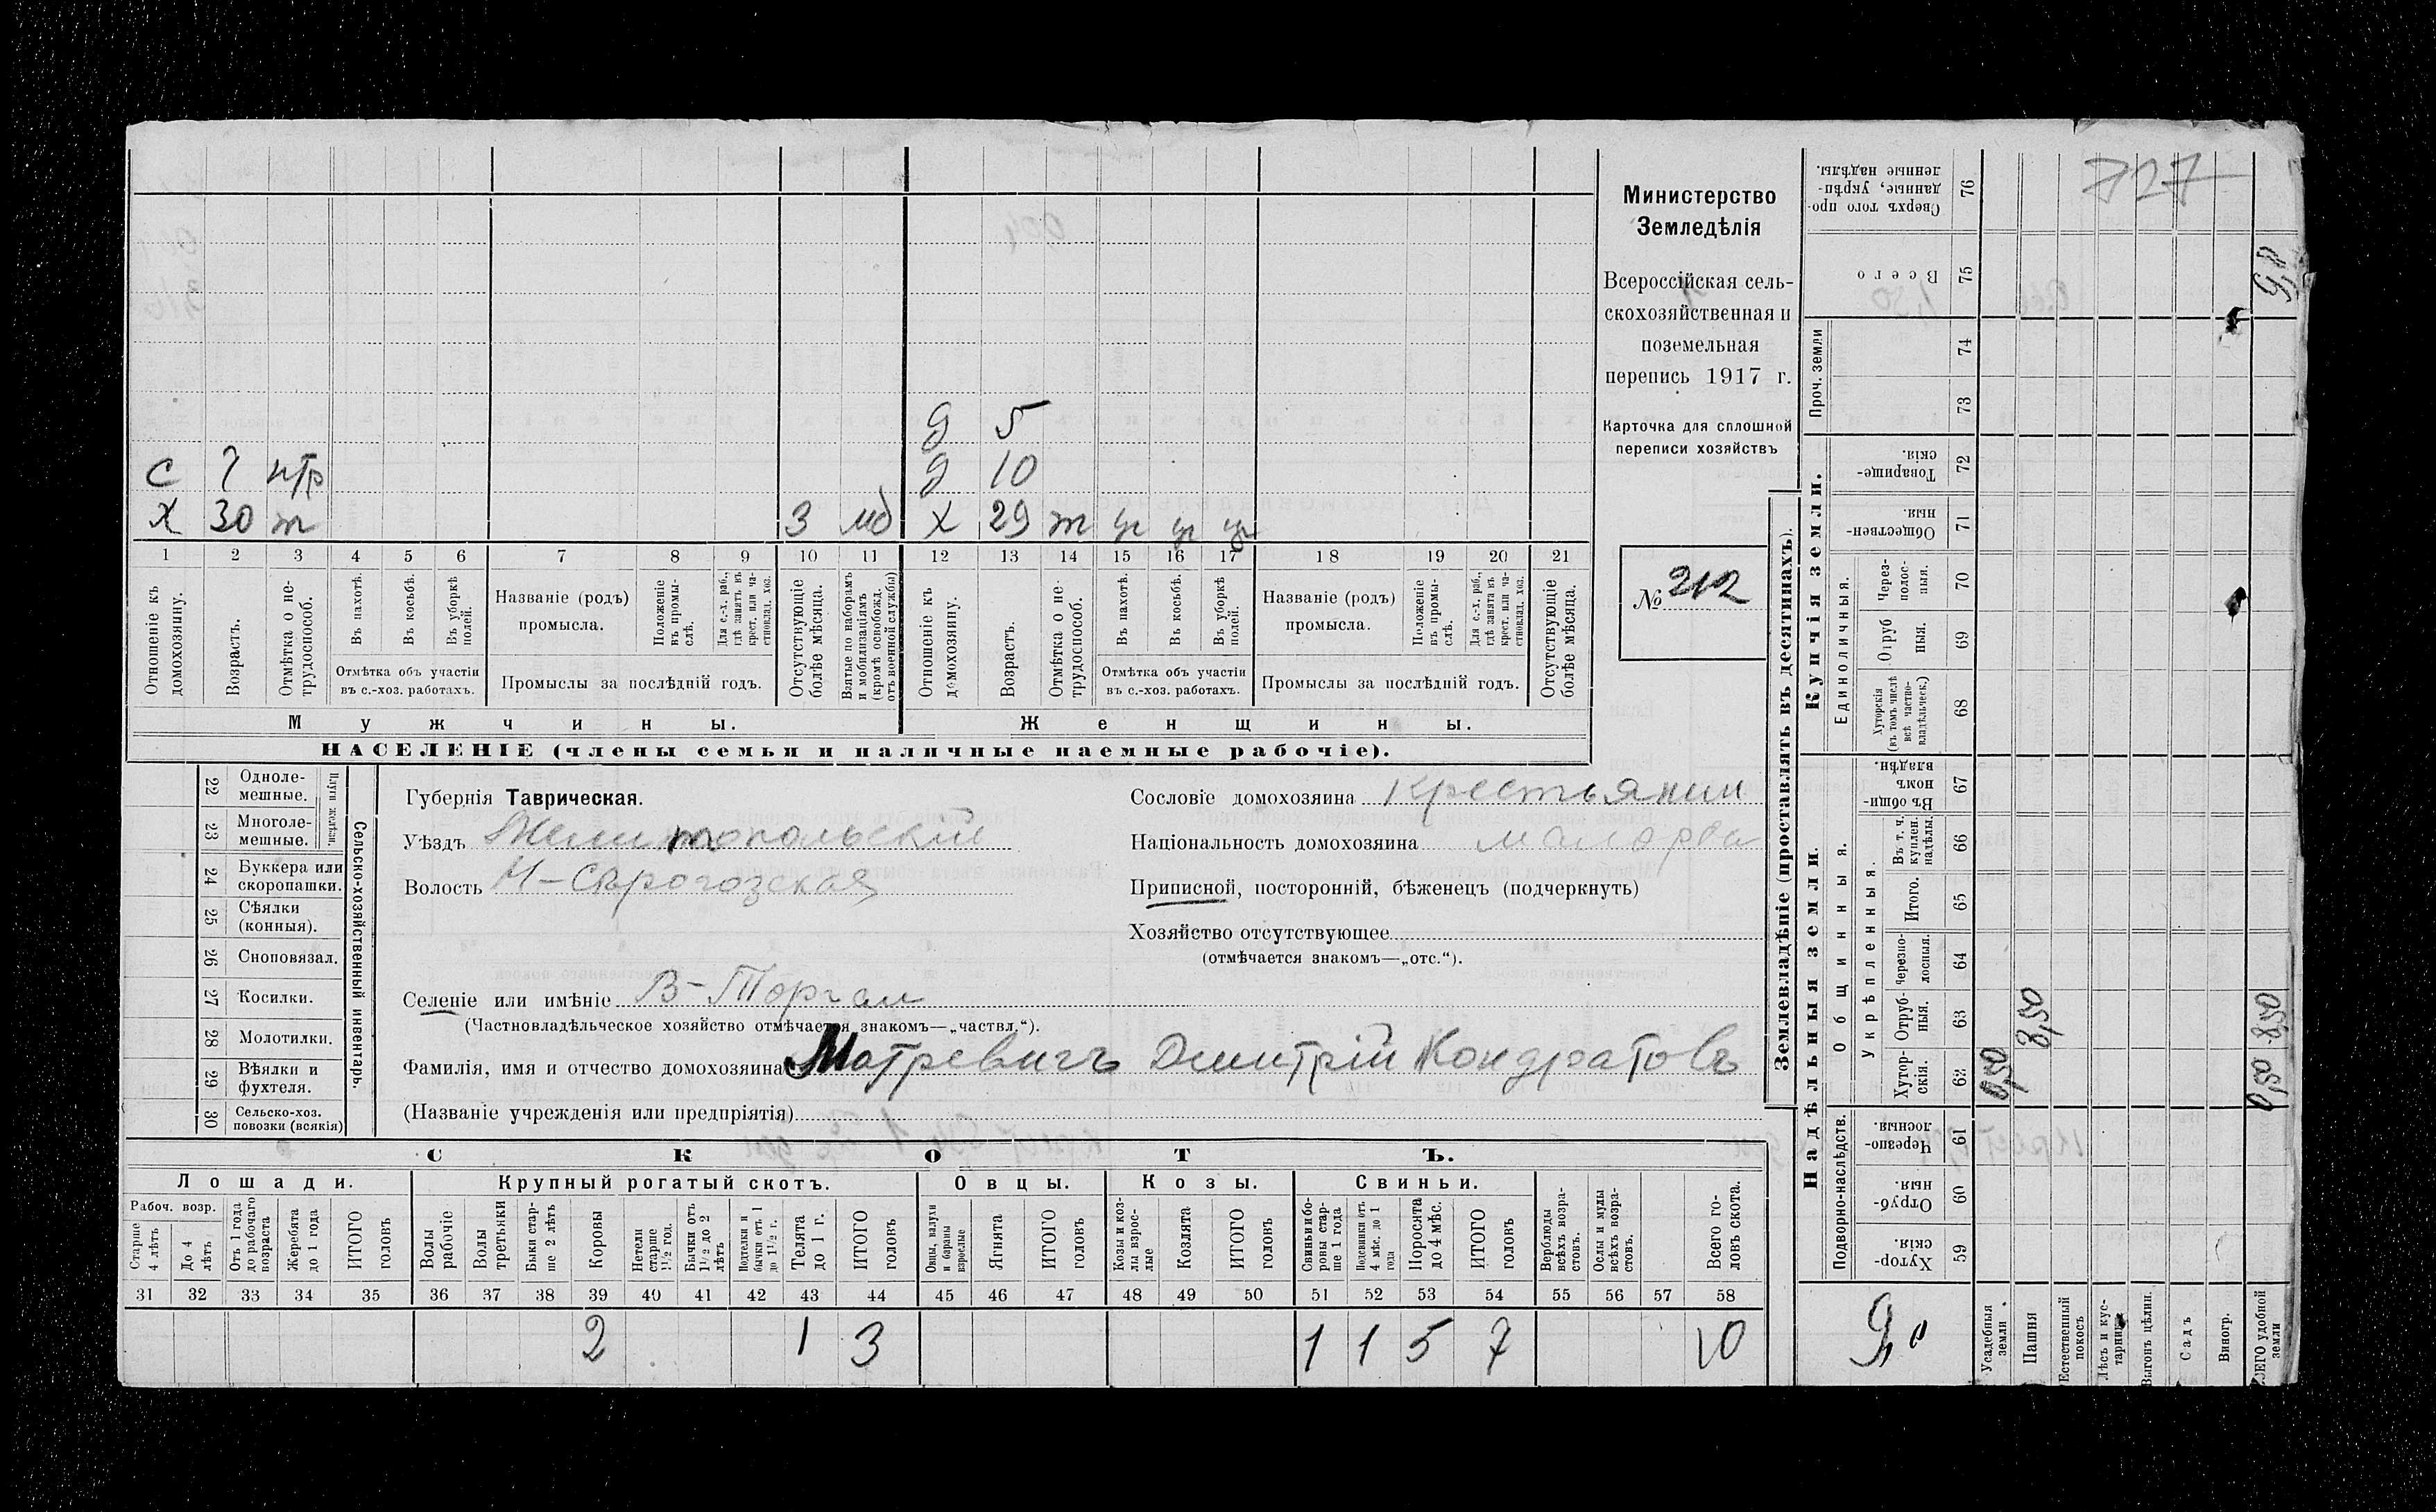 727
Министерство
Земледѣлія
Всероссійская сель-
скохозяйственная и
поземельная
перепись 1917 г.
Карточка для сплошной
переписи хозяйствъ
№ 212
д 5
с 7 нтр д 10
х 30 т 3 мб х 29 т
1 2 3 4 5 6 7 8 9 10 11 12 13 14 15 16 17 18 19 20 21
Отношеніе къ домохозяину.
Возрастъ.
Отмѣтка о не-трудоспособ.
Въ пахотѣ.
Въ косьбѣ.
Въ уборкѣ полей.
Отмѣтка объ участіи
въ с.-хоз. работахъ.
Названіе (родъ)
промысла.
Положеніе въ промы-слѣ.
Для с.-х. раб., гдѣ занятъ въ крест. или ча-стновлад. хоз.
Промыслы за послѣдній годъ.
Отсутствующіе болѣе мѣсяца.
Взятые по наборамъ и мобилизаціямъ (кромѣ освобожд. отъ военной службы)
Отношеніе къ домохозяину.
Возрастъ.
Отмѣтка о не-трудоспособ.
Въ пахотѣ.
Въ косьбѣ.
Въ уборкѣ полей.
Отмѣтка объ участіи
въ с.-хоз. работахъ.
Названіе (родъ)
промысла.
Положеніе въ промы-слѣ.
Для с.-х. раб., гдѣ занята въ крест. или ча-стновлад. хоз.
Промыслы за послѣдній годъ.
Отсутствующіе болѣе мѣсяца.
Мужчины.
Женщины.
НАСЕЛЕНІЕ (члены семьи и наличные наемные рабочіе).
Сельско-хозяйственный инвентарь.
Плуги желѣзн.
22 Одноле-мешные.
23 Многоле-мешные.
24 Буккера или скоропашки.
25 Сѣялки (конныя).
26 Сноповязал.
27 Косилки.
28 Молотилки.
29 Вѣялки и фухтеля.
30 Сельско-хоз. повозки (всякія)
Губернія Таврическая.
Уѣздъ Мелитопольскій
Волость Н-Сѣрогозская
Селеніе или имѣніе В-Торгаи
(Частновладѣльческое хозяйство отмѣчается знакомъ—„частвл.“).
Фамилія, имя и отчество домохозяина Мотревичъ Дмитрій Кондратовъ
(Названіе учрежденія или предпріятія)
Сословіе домохозяина Крестьянин
Національность домохозяина
Приписной, посторонній, бѣженецъ (подчеркнуть)
Хозяйство отсутствующее
(отмѣчается знакомъ—„отс.“).
СКОТЪ.
Лошади.
Крупный рогатый скотъ.
Овцы.
Козы.
Свиньи.
Рабоч. возр.
Старше 4 лѣтъ
До 4 лѣтъ
Отъ 1 года до рабочаго возраста
Жеребята до 1 года
ИТОГО головъ
Волы рабочіе
Волы третьяки
Быки стар-ше 2 лѣтъ
Коровы
Нетели старше 1½ год.
Бычки отъ 1½ до 2 лѣтъ
Подтелки и бычки отъ 1 до 1½ г.
Телята до 1 г.
ИТОГО головъ
Овцы, валухи и бараны взрослые
Ягнята
ИТОГО головъ
Козы и коз-лы взрос-лые
Козлята
ИТОГО головъ
Свиньи и бо-роны стар-ше 1 года
Подсвинки отъ 4 мѣс. до 1 года
Поросята до 4 мѣс.
ИТОГО головъ
Верблюды всѣхъ возра-стовъ.
Ослы и мулы всѣхъ возра-стовъ.
Всего го-ловъ скота.
31 32 33 34 35 36 37 38 39 40 41 42 43 44 45 46 47 48 49 50 51 52 53 54 55 56 57 58
2 1 3 1 1 5 7 10
Землевладѣніе (проставлять въ десятинахъ).
Купчія земли.
Надѣльныя земли.
Проч. земли
Единоличныя.
Общинныя.
Укрѣпленныя.
Подворно-наслѣдств.
76 Сверхъ того про-данные, укрѣп-ленные надѣлы.
75 Всего 9,0
74
73
72 Товарище-скія.
71 Обществен-ныя.
70 Через-полос-ныя.
69 Отруб ныя.
68 Хуторскія (въ томъ числѣ всѣ частно-владѣльческ.)
67 Въ общи-номъ владѣн.
66 Въ т. ч. куплен. надѣлы.
65 Итого.
64 Черезпо-лосныя.
63 Отруб-ныя. 8,50 8,50
62 Хутор-скія. 0,50 0,50
61 Черезпо-лосныя
60 Отруб-ныя.
59 Хутор-скія.
9,0
Усадебныя земли.
Пашня
Естественный покосъ
Лѣсъ и кус-тарник.
Выгонъ цѣлин.
Садъ
Виногр.
удобной земли